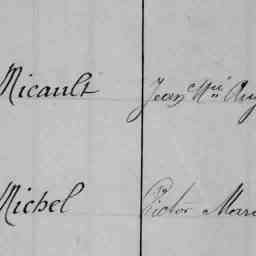 Micault Jean Mie Aug
Michel Victor Mari